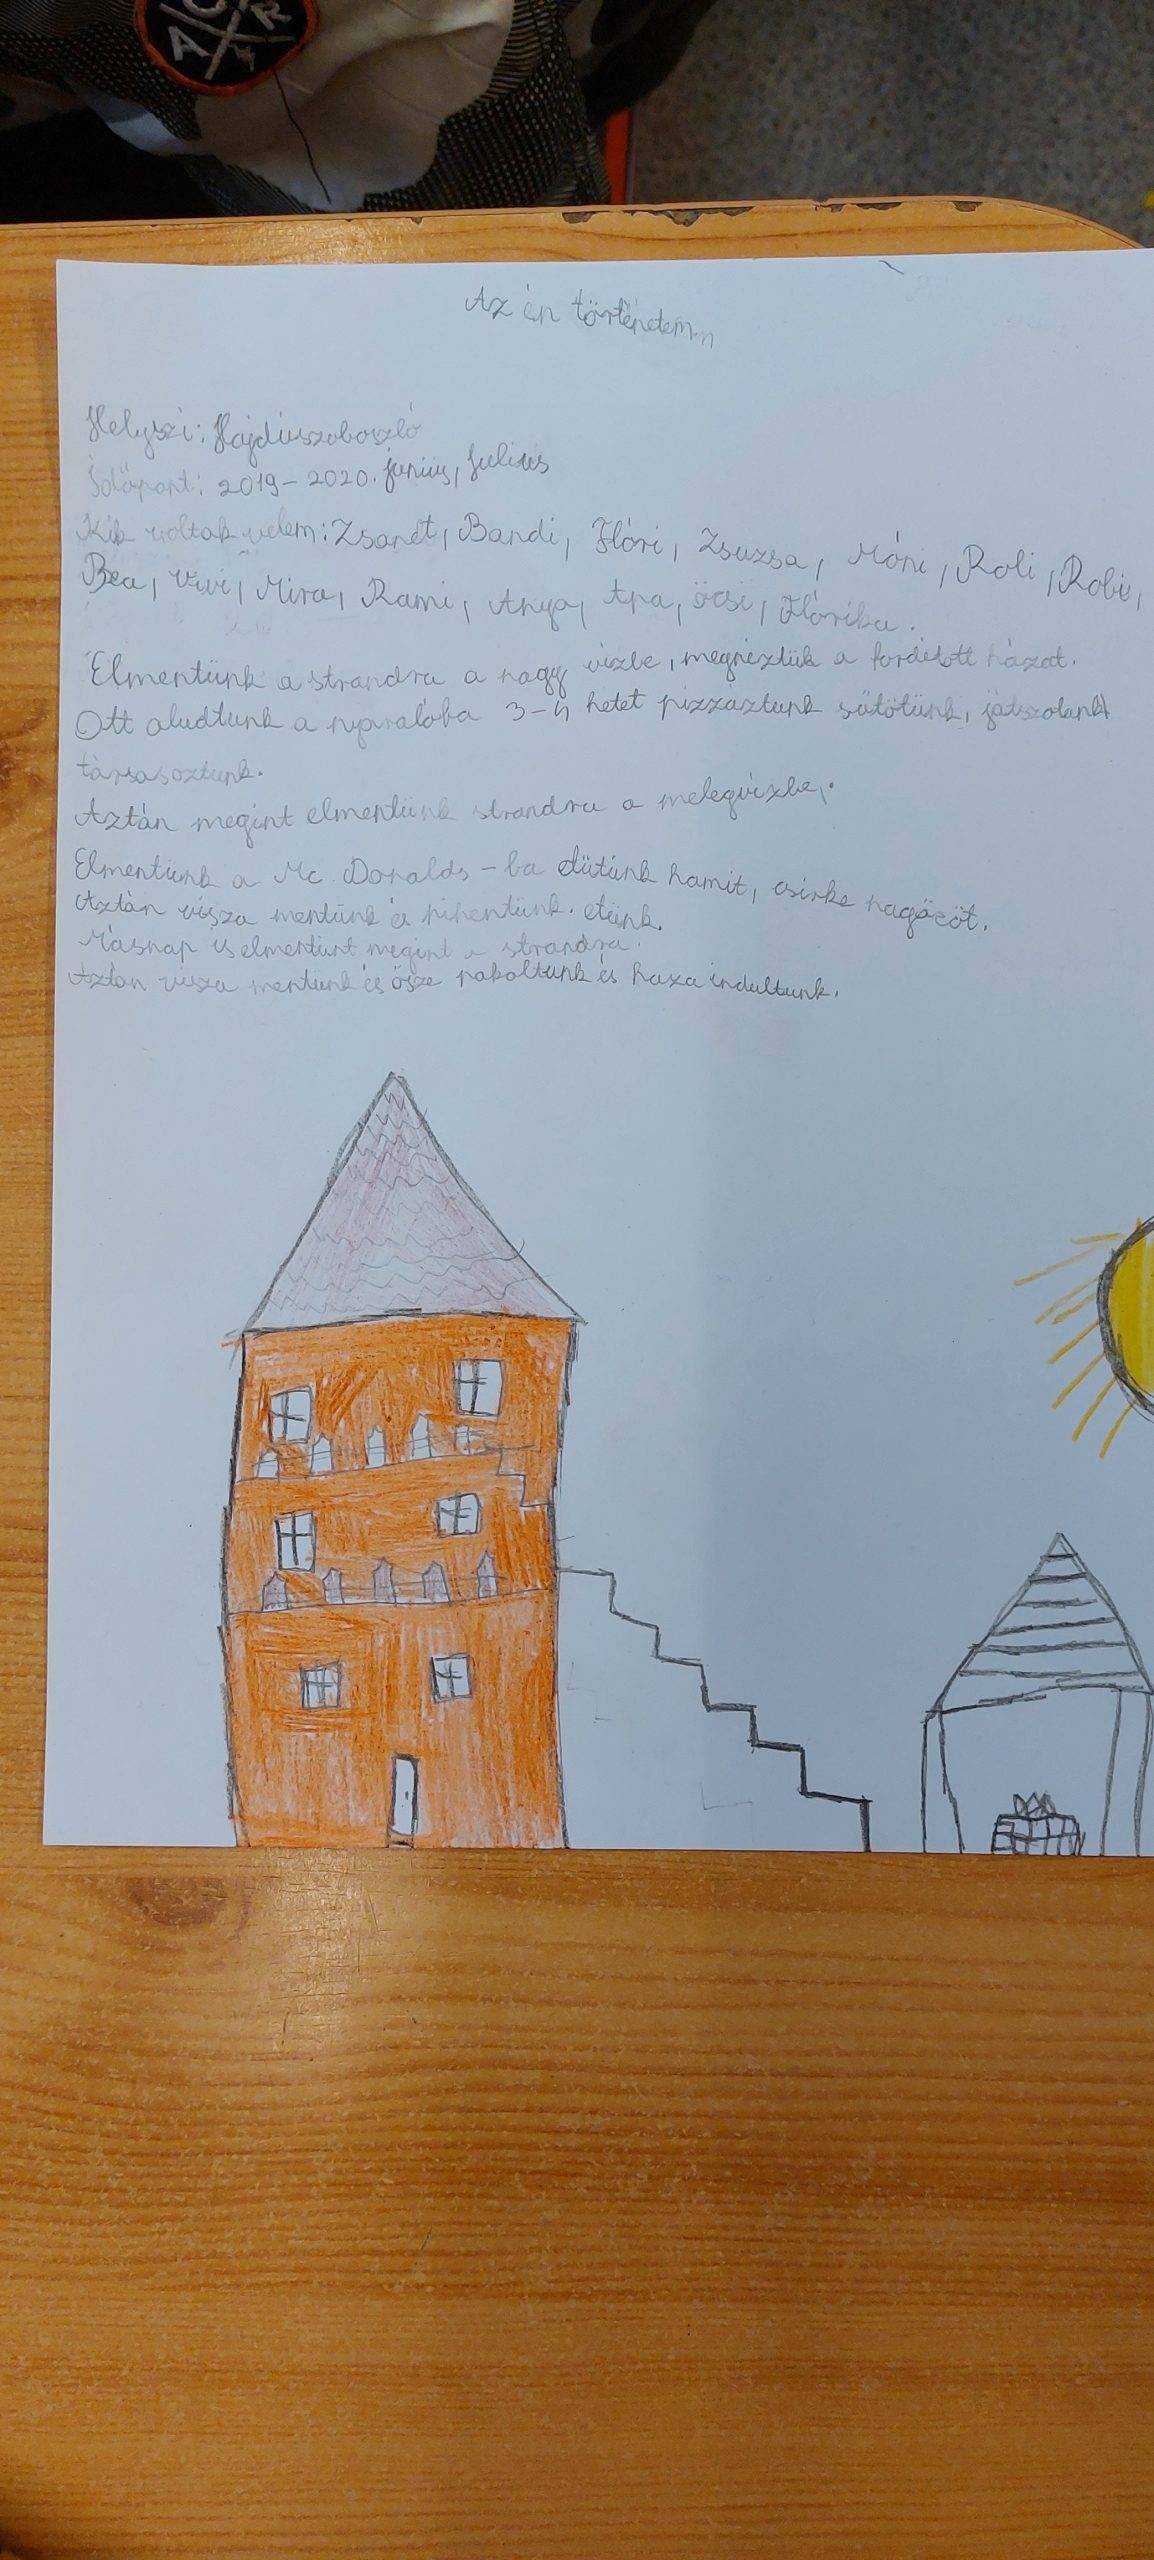 Az én történetem
Helyszi: Hajdúszoboszló
Időpont: 2019-2020. június, Julius
Kik voltak velem: Zsanet, Bandi, Flóri, Zsuzsa, Móni, Roli, Robi,
Bea, Vivi, Mira, Rami, Anya, Apa, öcsi, Flórika.
Elmentünk a strandra a nagy vizbe, megnéztük a forditott házat.
Ott aludtunk a nyaralóba 3-4 hetet pizzáztunk sütötünk, játszotunk
társasoztunk.
Aztán megint elmentünk strandra a melegvizbe.
Elmentünk a Mc Donalds-ba ettünk hamit, csirke nagöcöt.
Aztán visza mentünk és pihentünk. etünk.
Másnap is elmentünt megint a strandra.
Aztán visza mentünk és ösze pakoltunk és haza indultunk.